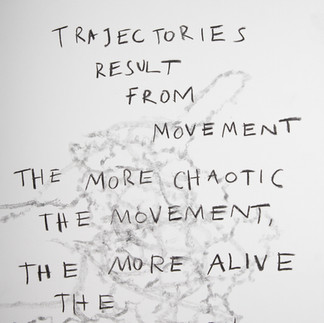 TRAJECTORIES
RESULT
FROM
MOVEMENT
THE MORE CHAOTIC
THE MOVEMENT,
THE MORE ALIVE
THE